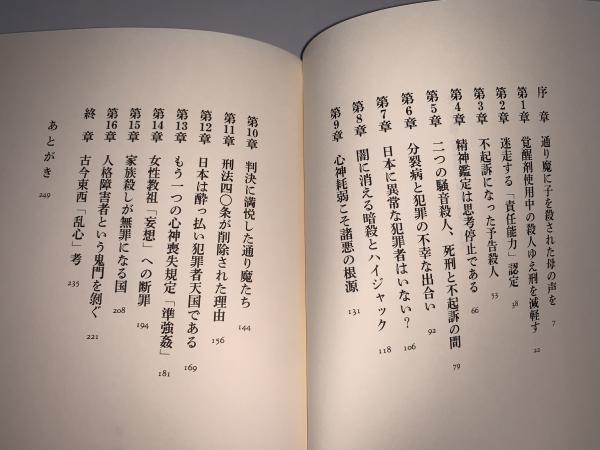 序　章　通り魔に子を殺された母の声を　7
第1章　覚醒剤使用中の殺人ゆえ刑を減軽す　22
第2章　迷走する「責任能力」認定　38
第3章　不起訴になった予告殺人　53
第4章　精神鑑定は思考停止である　66
第5章　二つの騒音殺人、死刑と不起訴の間　79
第6章　分裂病と犯罪の不幸な出合い　92
第7章　日本に異常な犯罪者はいない？　106
第8章　闇に消える暗殺とハイジャック　118
第9章　心神耗弱こそ諸悪の根源　131
第10章　判決に満悦した通り魔たち　144
第11章　刑法四〇条が削除された理由　156
第12章　日本は酔っ払い犯罪者天国である　169
第13章　もう一つの心神喪失規定「準強姦」　181
第14章　女性教祖「妄想」への断罪　194
第15章　家族殺しが無罪になる国　208
第16章　人格障害者という鬼門を剝ぐ　221
終　章　古今東西「乱心」考　235
あとがき　249